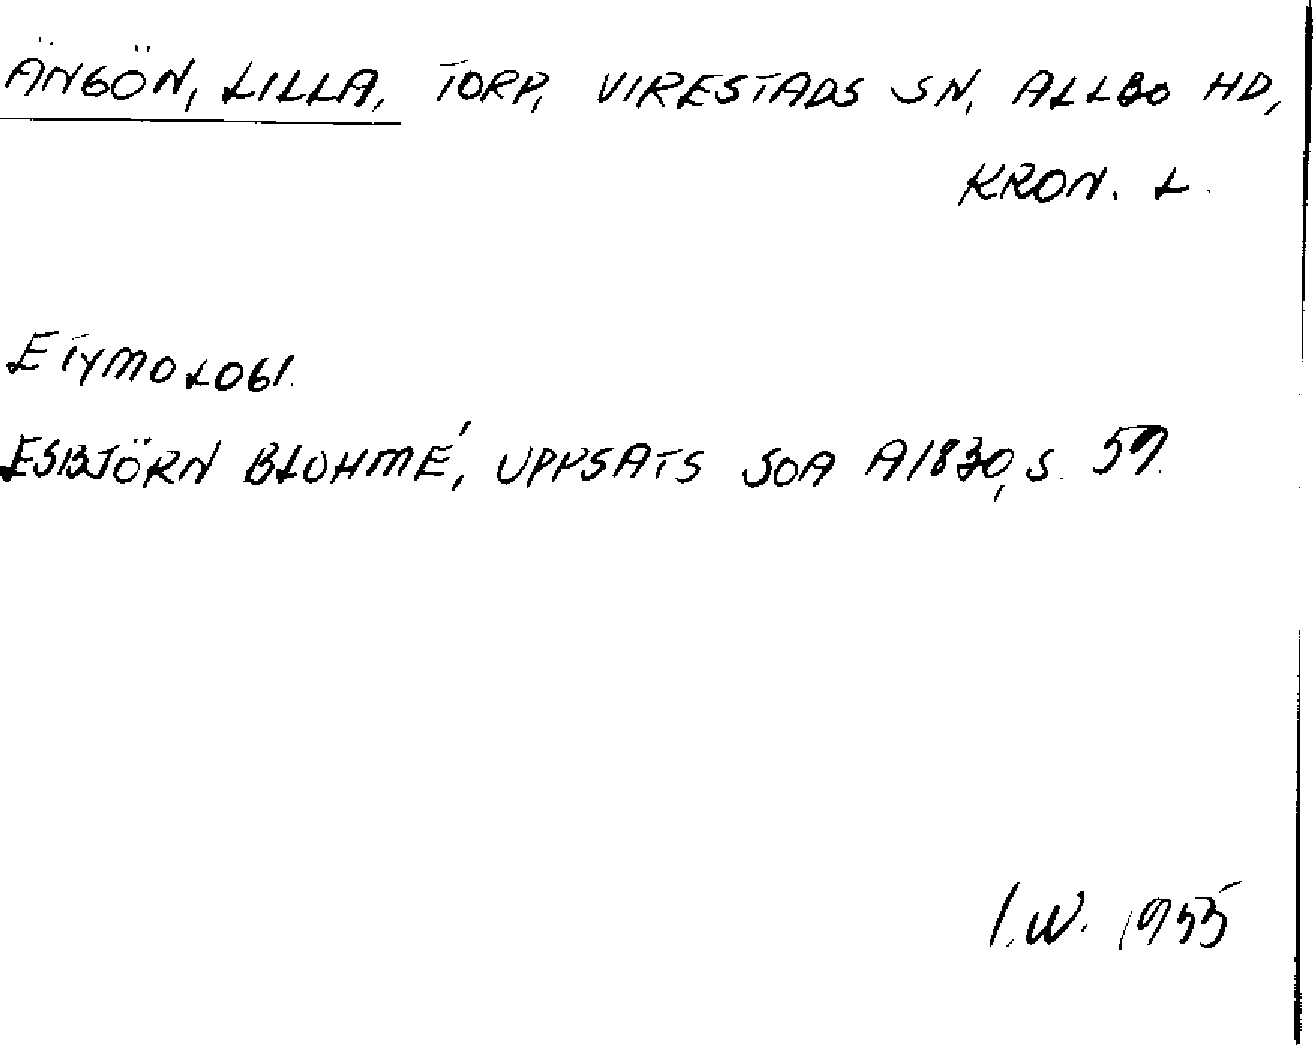 ÄNGÖN, LILLA, TORP, VIRESTADS SN, ALLBO HD,
KRON. L.
ETYMOLOGI.
ESBJÖRN BLOHMÉ, UPPSATS SOA A1830, S. 59.
I.W. 1955